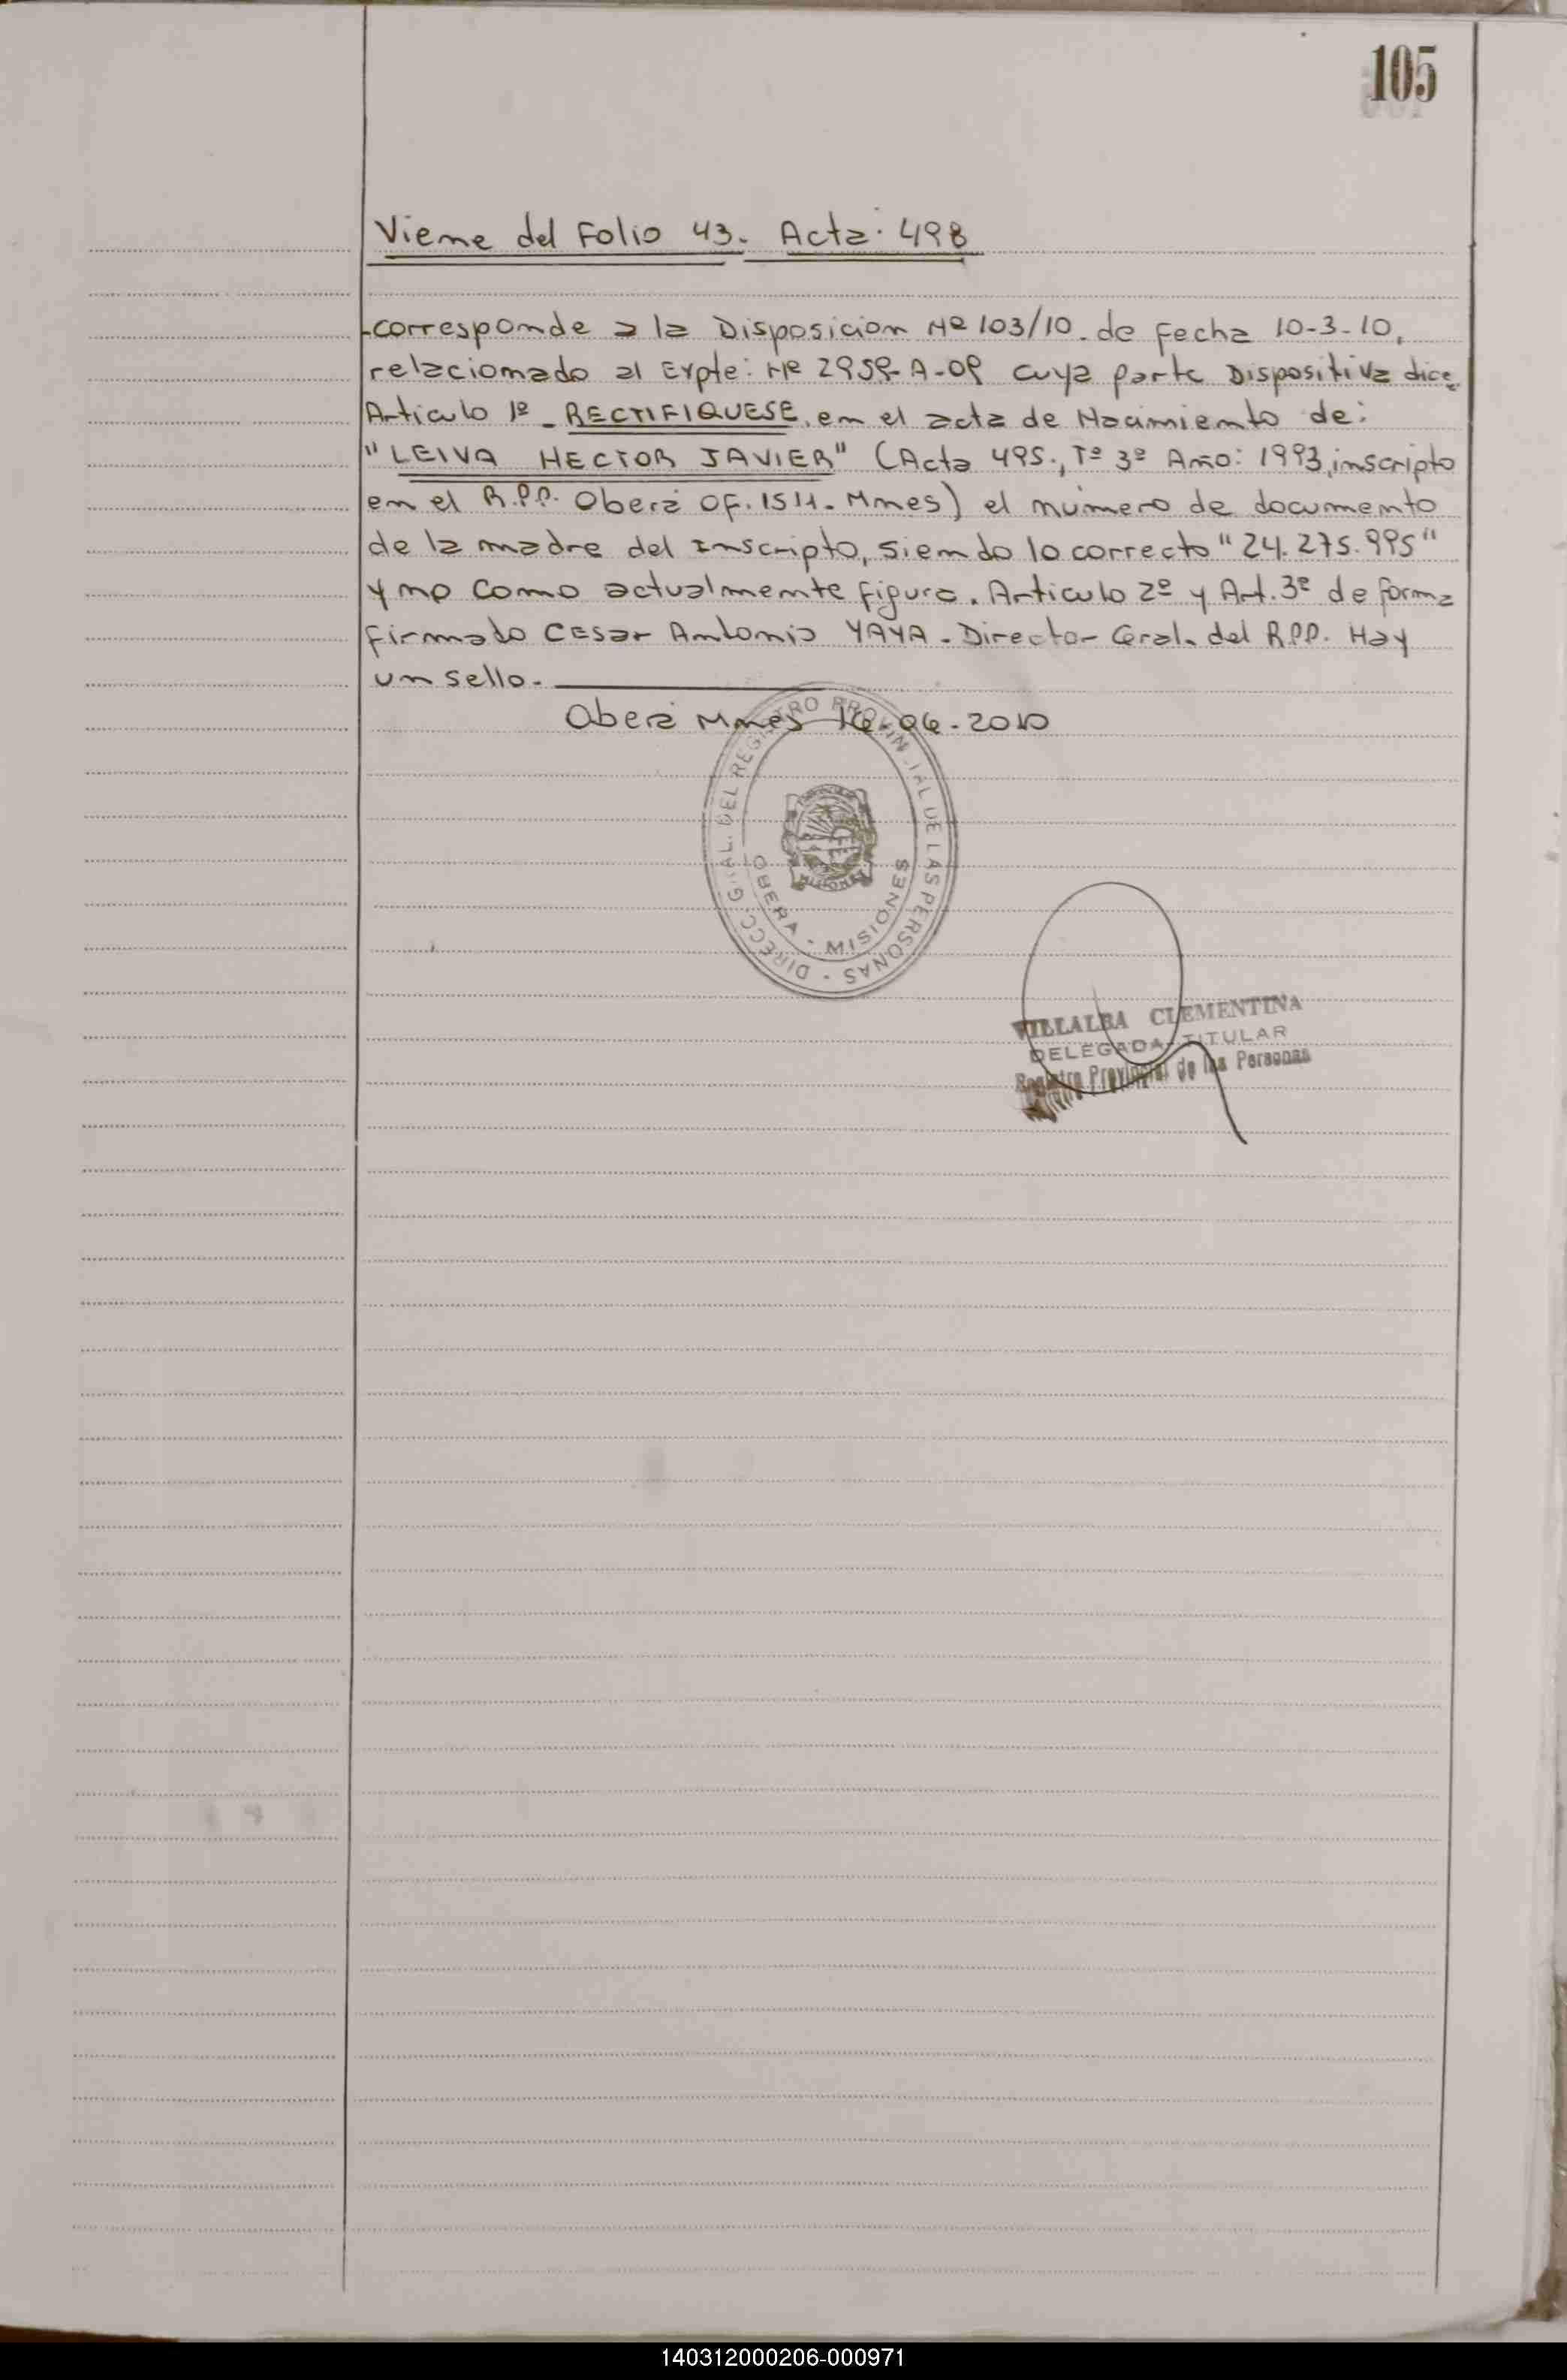 105
Viene del Folio 43. Acta: 498
-corresponde a la Disposicion Nº 103/10. de Fecha 10-3-10,
relacionado al Expte: Nº 2959-A-09 cuya parte Dispositiva dice
Articulo 1º - RECTIFIQUESE, en el acta de Nacimiento de:
"LEIVA HECTOR JAVIER" (Acta 495., Tº 3º Año: 1993, inscripto
en el R.P.P. Oberá OF. 1511. Mnes) el número de documento
de la madre del inscripto, siendo lo correcto "24.275.995"
y no como actualmente figura. Articulo 2º y Art. 3º de forma
firmado CESar Antonio YAYA - Director Gral. del R.P.P. Hay
un sello.
Oberá Mnes 16-06-2010
DIRECC. GRAL. DEL REGISTRO PROVINCIAL DE LAS PERSONAS -
OBERA - MISIONES
MISIONES
VILLALBA CLEMENTINA
DELEGADA TITULAR
Registro Provincial de las Personas
140312000206-000971